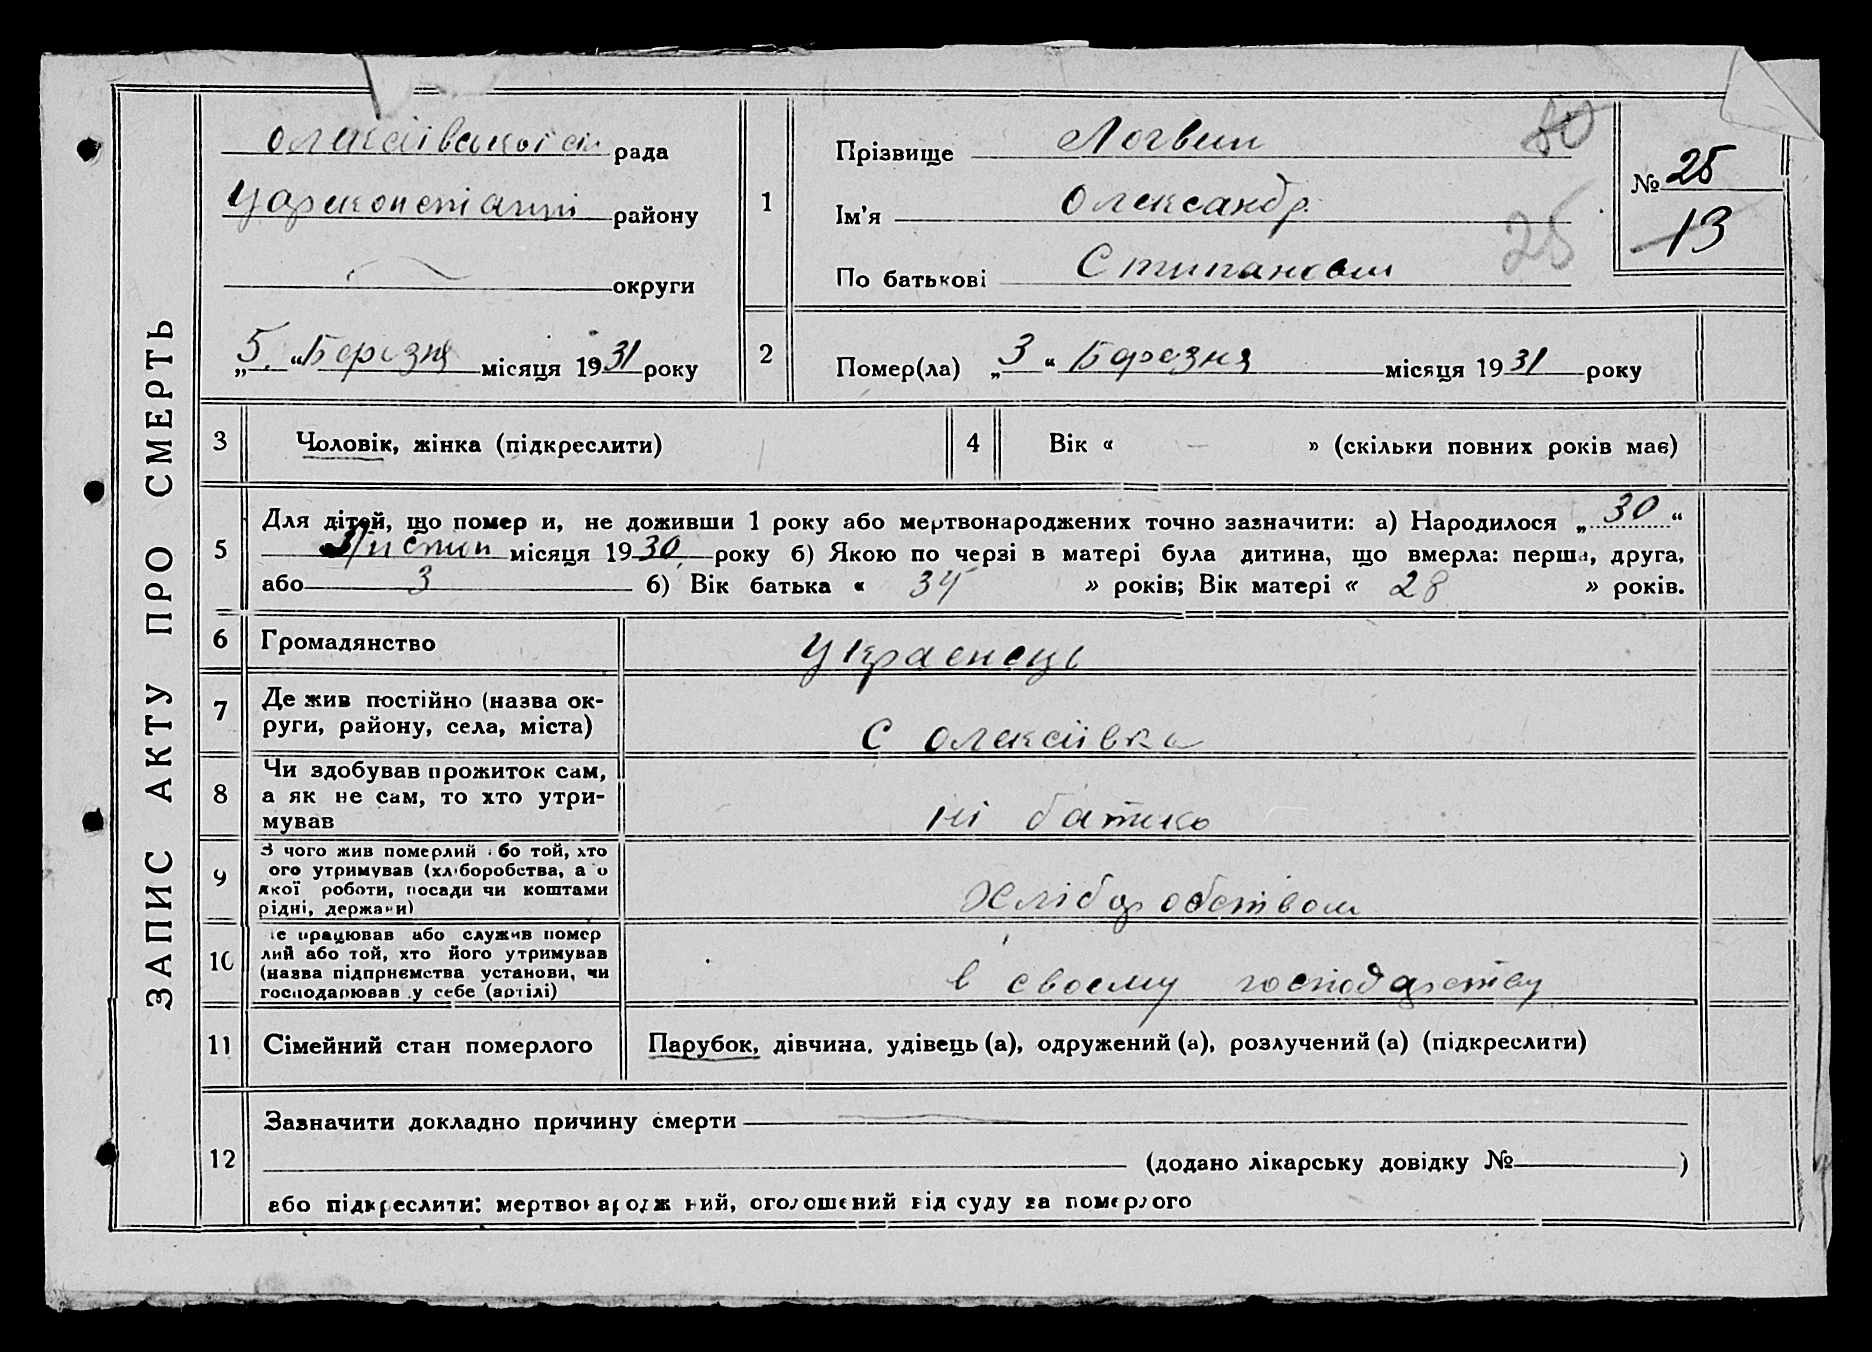 ЗАПИС АКТУ ПРО СМЕРТЬ
рада
району
округи
„5“ Березня місяця 1931 року
1
Прізвище Логвин
Ім'я Олександр
По батькові Стипанович
№ 25
13
80
25
2
Помер(ла) „3“ Березня місяця 1931 року
3
Чоловік, жінка (підкреслити)
4
Вік « — » (скільки повних років має)
5
Для дітей, що помер и, не доживши 1 року або мертвонароджених точно зазначити: а) Народилося „30“
Листоп місяця 1930 року б) Якою по черзі в матері була дитина, що вмерла: перша, друга,
або 3 б) Вік батька « 34 » років; Вік матері « 28 » років.
6
Громадянство
Украенець
7
Де жив постійно (назва ок-
руги, району, села, міста)
С Олексіівка
8
Чи здобував прожиток сам,
а як не сам, то хто утри-
мував
ні батько
9
З чого жив померлий або той, хто
ого утримував (хліборобства, а о
якої роботи, посади чи коштами
рідні, держави)
Хліборобством
10
е працював або служив помер
лий або той, хто його утримував
(назва підприємства установи, чи
господарював у себе (артілі)
в своему господарству
11
Сімейний стан померлого
Парубок, дівчина, удівець (а), одружений (а), розлучений (а) (підкреслити)
12
Зазначити докладно причину смерти
(додано лікарську довідку № )
або підкреслити: мертвонароджений, оголошений від суду за померлого